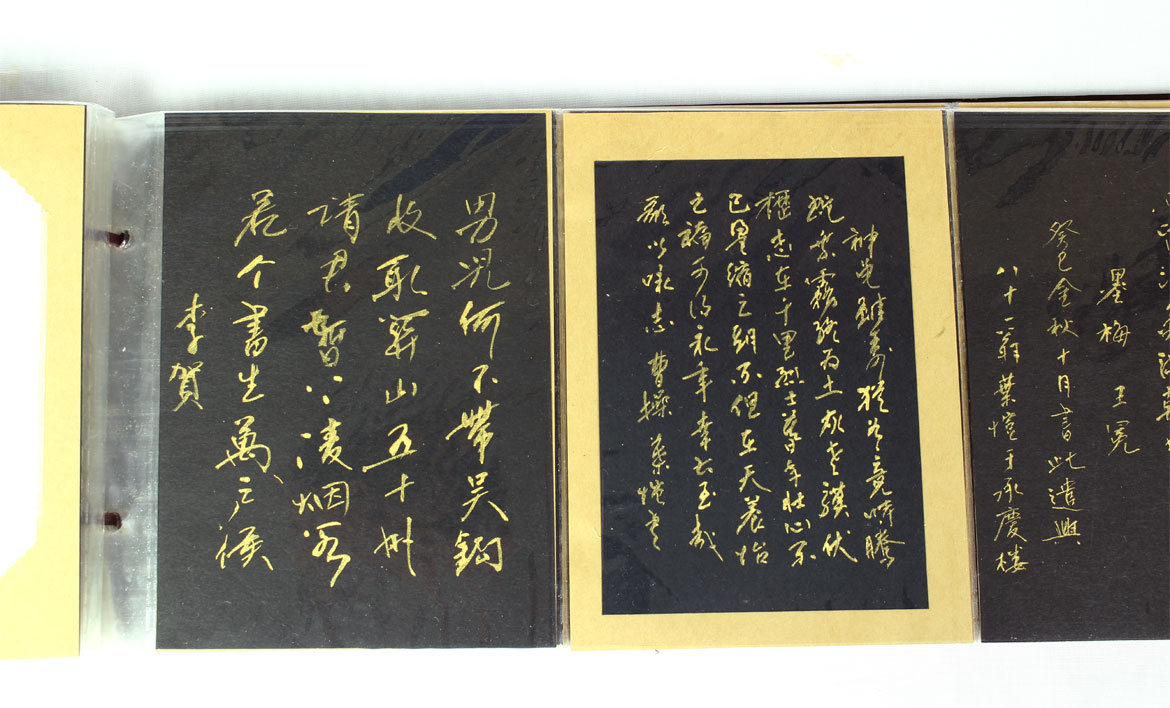 墨梅 王冕
癸巳金秋十月書此遣興
八十一翁葉愷于承慶楼
神龟雖寿猶有竟時騰
蛇乘霧終为土灰老骥伏
櫪志在千里烈士暮年壮心不
已盈缩之期不但在天養怡
之福可得永年幸甚至哉
歌以咏志 曹操 葉愷書
男児何不帶吴鈎
收取關山五十州
请君暫上凌烟阁
若个書生萬户侯
李賀